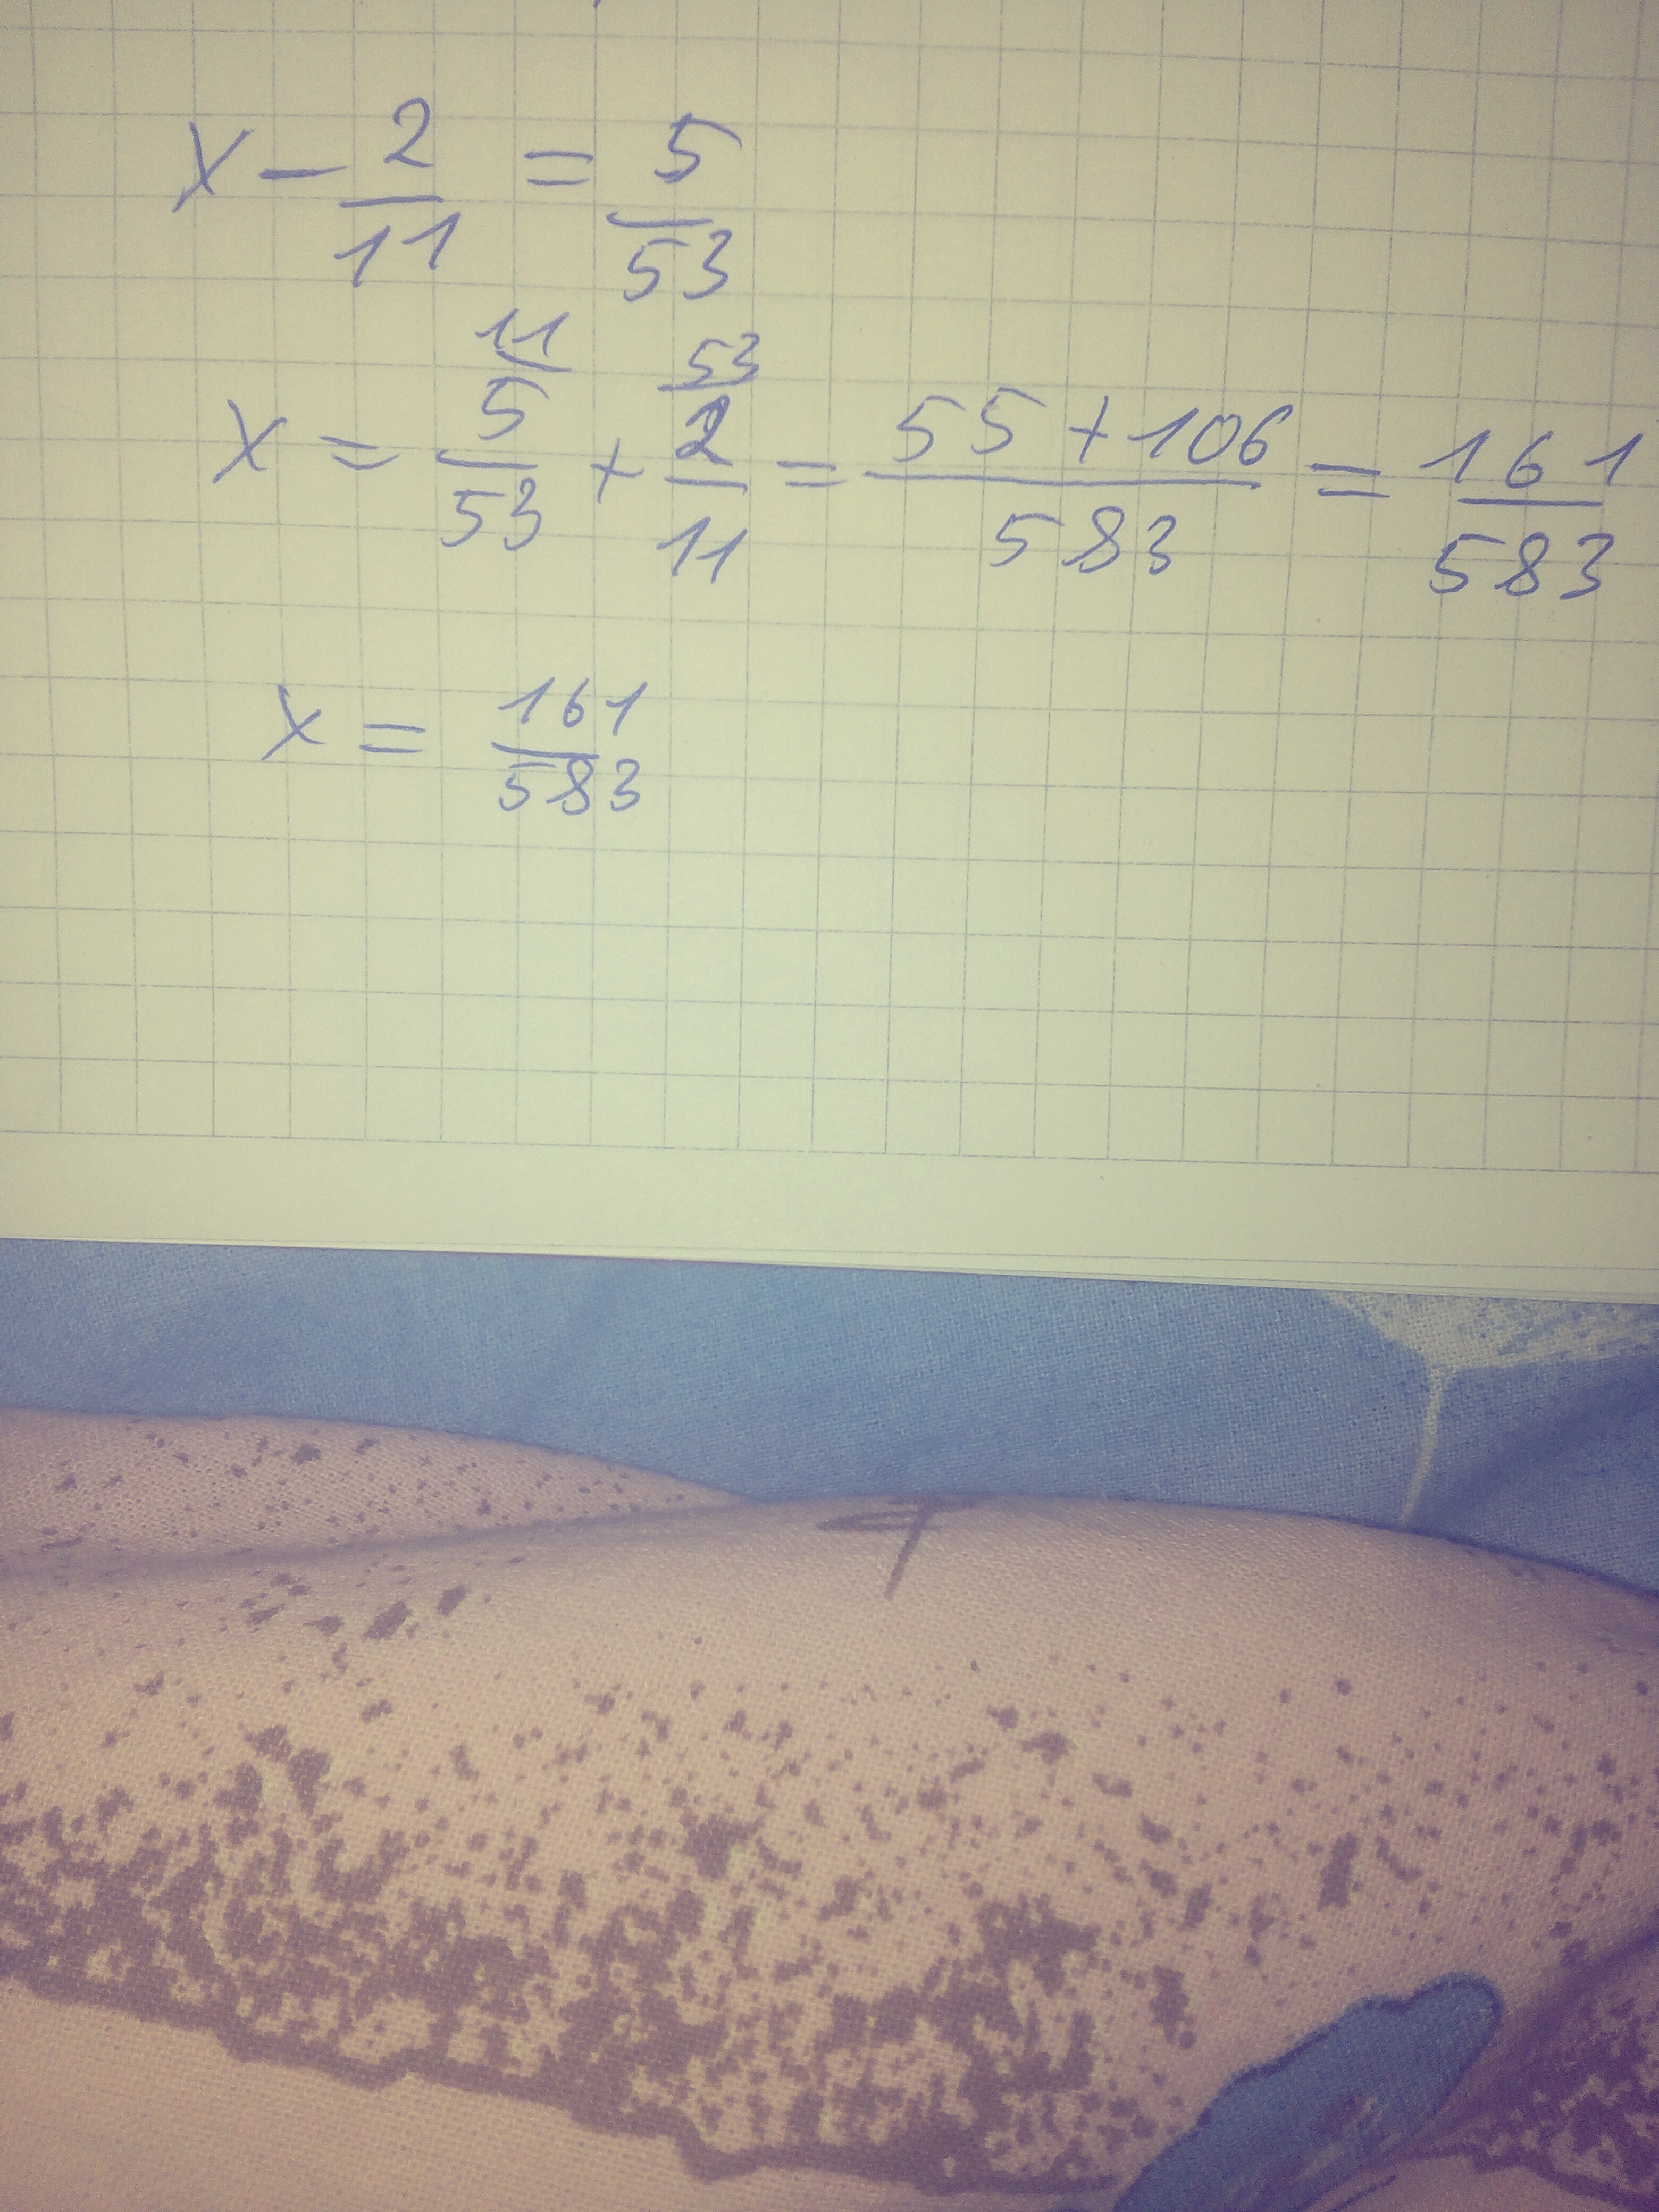 x - 2/11 = 5/53
x = 11 5/53 + 53 2/11 = 55+106/583 = 161/583
x = 161/583